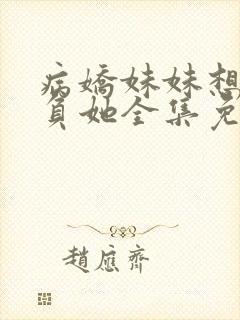 病嬌妹妹想
負她全集免
趙應齊